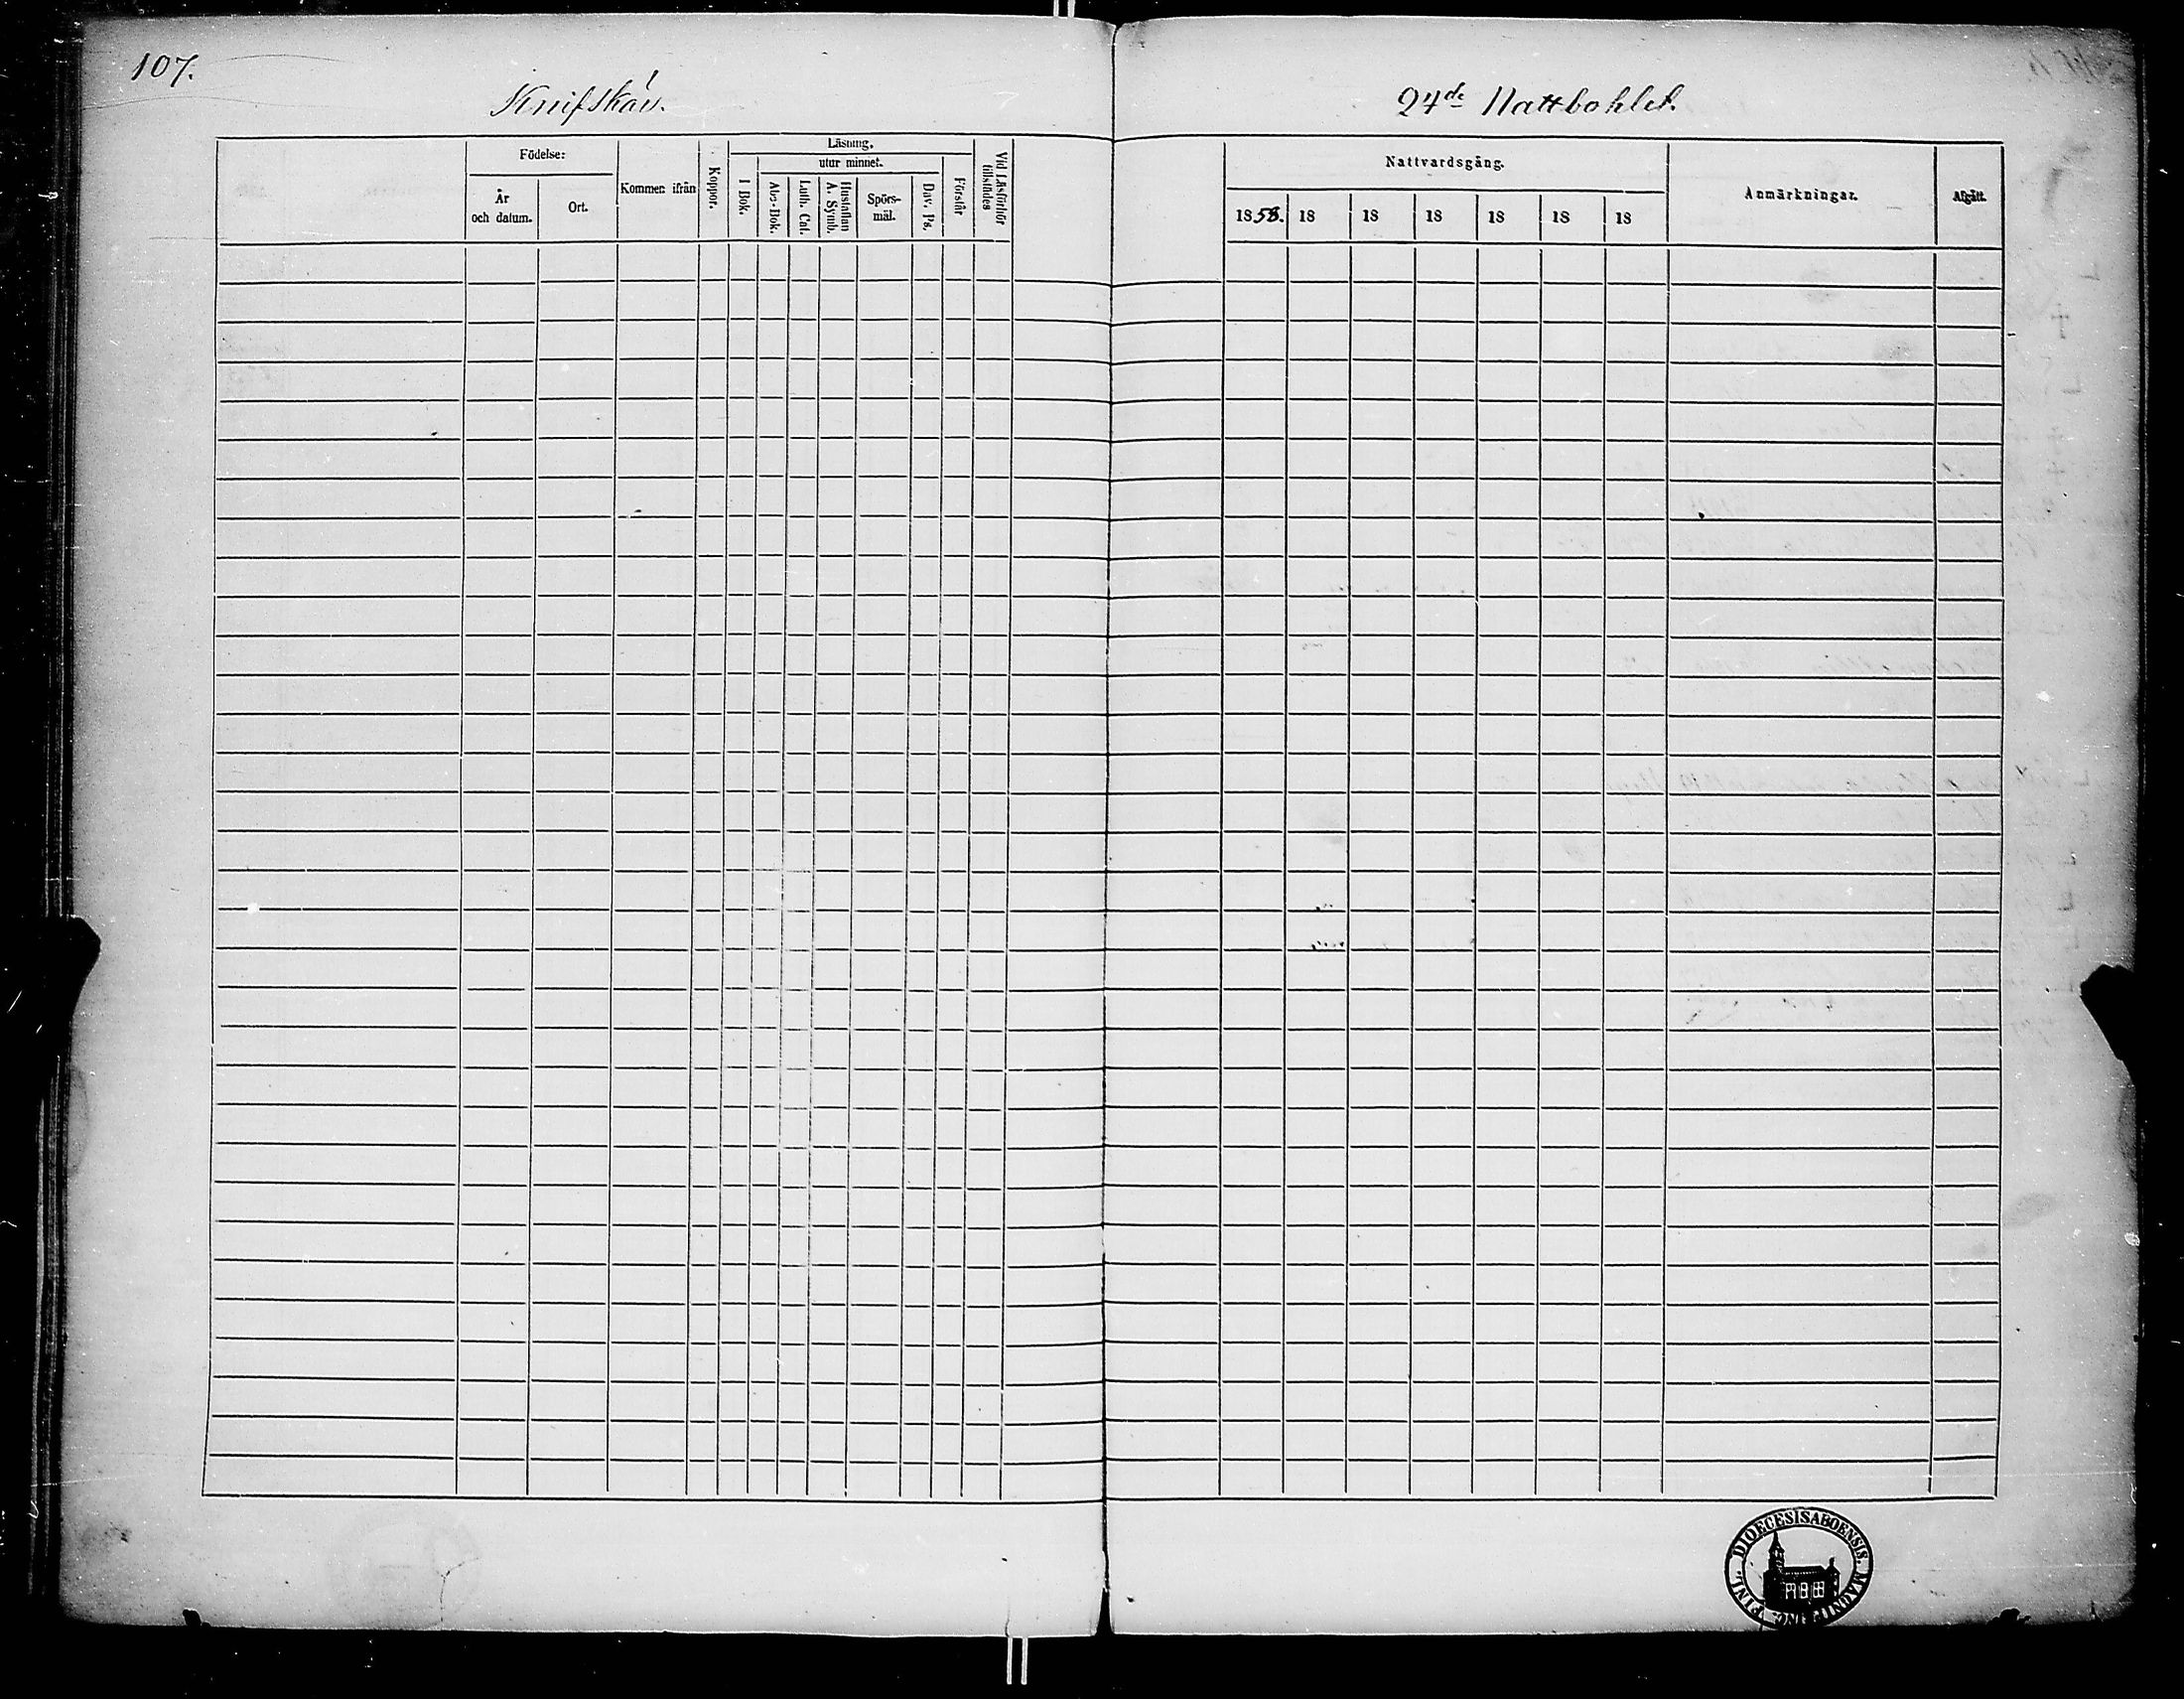 107.
Knifskär. 24de Nattbohlet.
Födelse: År och datum. Ort. Kommen ifrån Koppor. Läsning. I Bok. utur minnet. Abc-Bok. Luth. Cat. Hustaflan A. Symb. Spörsmål. Dav. Ps. Förstår Vid Läsförhör tillstädes
Nattvardsgång. 1858. 18 18 18 18 18 18 Anmärkningar. Afgått.
DIOECESIS ABOENSIS. MAGNI DUC. FINL.